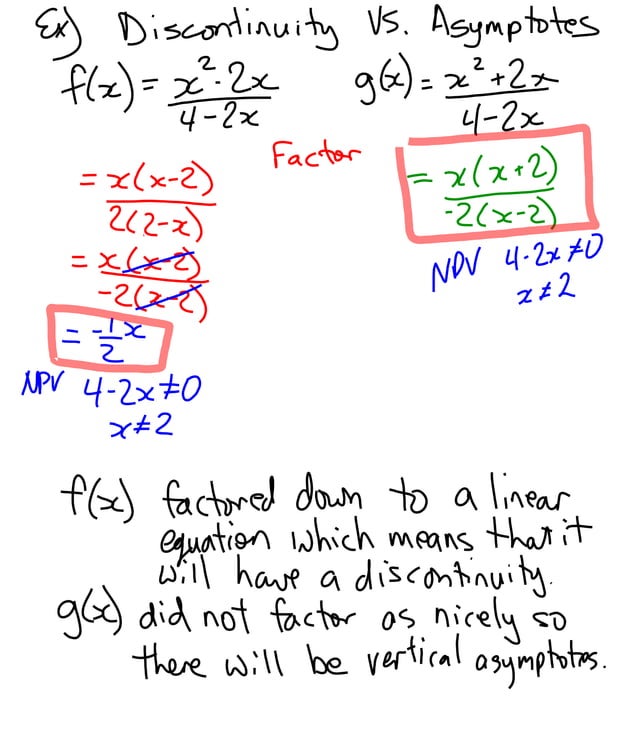 Ex) Discontinuity VS. Asymptotes
f(x) = x² - 2x / 4 - 2x    g(x) = x² + 2x / 4 - 2x
Factor
= x(x-2) / 2(2-x)
= x(x-2) / -2(x-2)
= -1/2 x
NPV 4-2x≠0
x≠2
= x(x+2) / -2(x-2)
NPV 4-2x≠0
x≠2
f(x) factored down to a linear
equation which means that it
will have a discontinuity.
g(x) did not factor as nicely so
there will be vertical asymptotes.